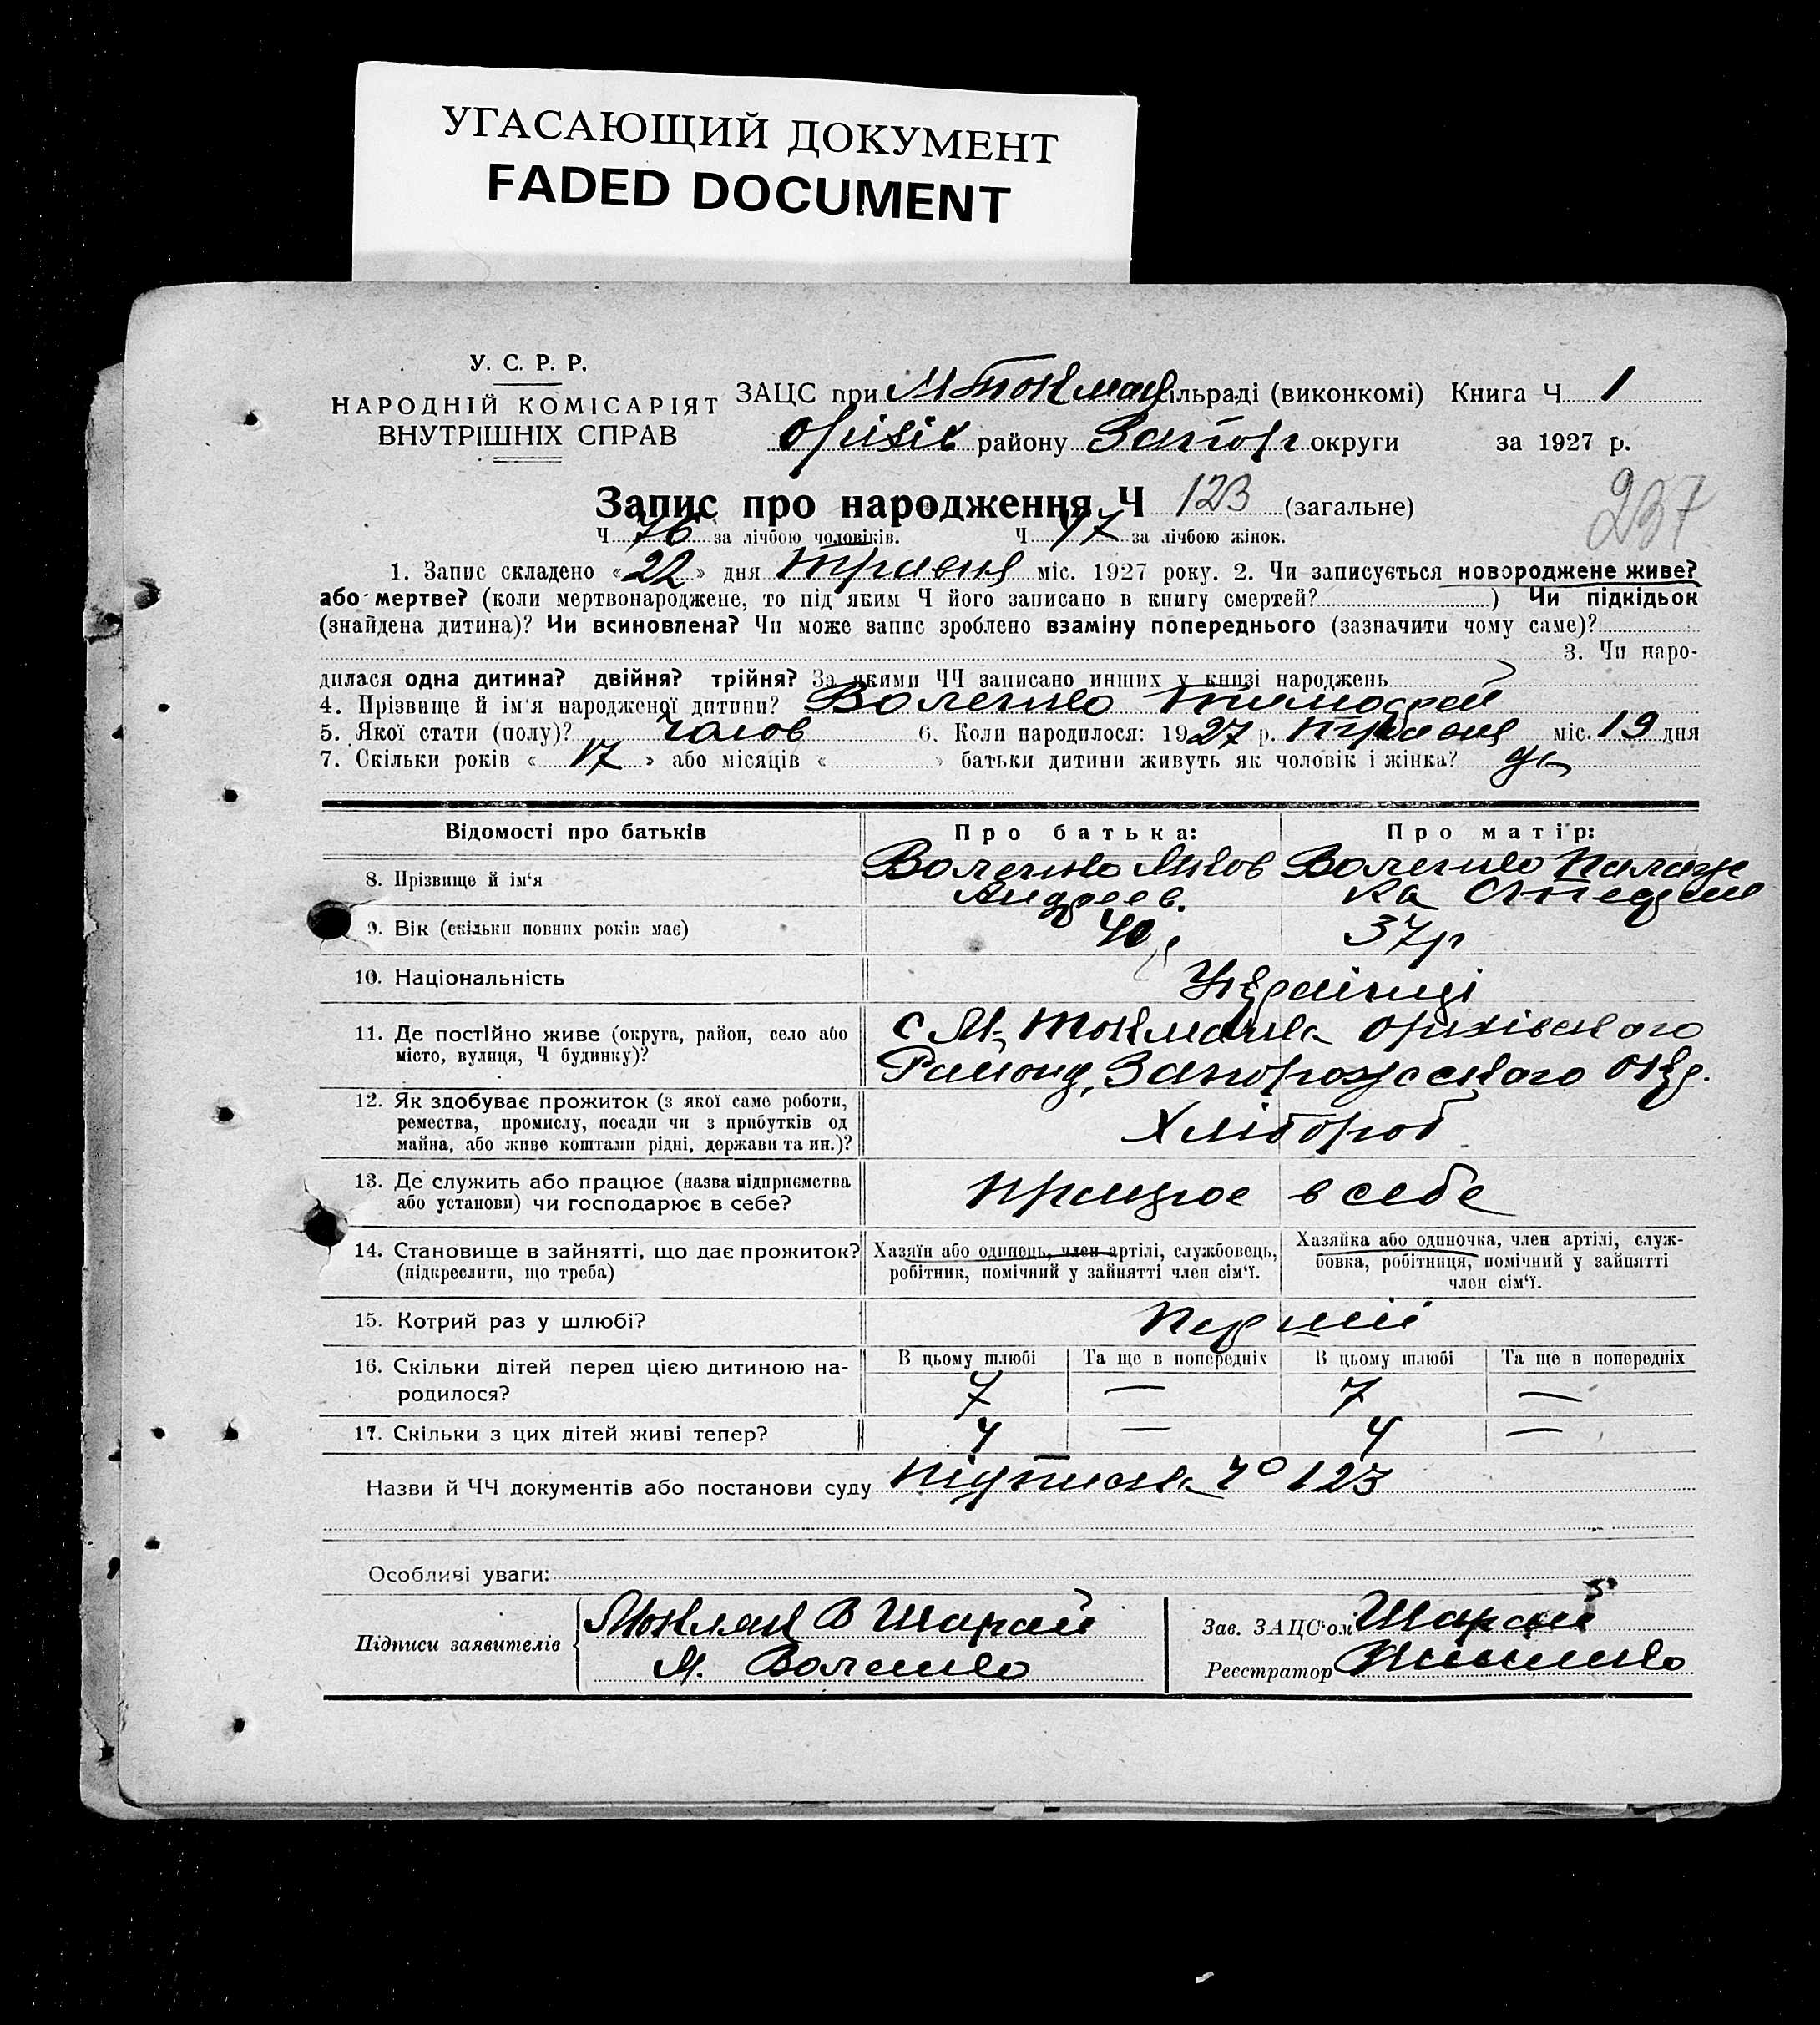 УГАСАЮЩИЙ ДОКУМЕНТ
FADED DOCUMENT
У. С. Р. Р.
НАРОДНІЙ КОМІСАРІЯТ
ВНУТРІШНІХ СПРАВ
ЗАЦС при М Токмац ільраді (виконкомі) Книга Ч. 1
Оріхів району Запор округи за 1927 р.
237
Запис про народження Ч 123 (загальне)
Ч 76 за лічбою чоловіків. Ч 47 за лічбою жінок.
1. Запис складено «22» дня травня міс. 1927 року. 2. Чи записується новороджене живе?
або мертве? (коли мертвонароджене, то під яким Ч його записано в книгу смертей? ) Чи підкідьок
(знайдена дитина)? Чи всиновлена? Чи може запис зроблено взаміну попереднього (зазначити чому саме)?
3. Чи наро-
дилася одна дитина? двійня? трійня? За якими ЧЧ записано инших у книзі народжень
4. Прізвище й ім'я народженої дитини? Тимофей
5. Якої стати (полу)? чолов 6. Коли народилося: 1927 р. травня міс. 19 дня
7. Скільки років «17» або місяців « » батьки дитини живуть як чоловік і жінка? да
Відомості про батьків Про батька: Про матір:
8. Прізвище й ім'я Яков Палаж
Андреев. ка
9. Вік (скільки повних років має) 40 37р
10. Національність Українці
11. Де постійно живе (округа, район, село або С М-Токмачка Оріхівського
місто, вулиця, Ч будинку)? Району, Запорожського Окр.
12. Як здобуває прожиток (з якої саме роботи,
ремества, промислу, посади чи з прибутків од Хлібороб
майна, або живе коштами рідні, держави та ин.)?
13. Де служить або працює (назва підприємства працює в себе
або установи) чи господарює в себе?
14. Становище в зайнятті, що дає прожиток? Хазяїн або одинець, член артілі, службовець, Хазяйка або одиночка, член артілі, служ-
(підкреслити, що треба) робітник, помічний у зайнятті член сім'ї. бовка, робітниця, помічний у зайнятті
член сім'ї.
15. Котрий раз у шлюбі? Перший
16. Скільки дітей перед цією дитиною на- В цьому шлюбі Та ще в попередніх В цьому шлюбі Та ще в попередніх
родилося? 7 — 7 —
17. Скільки з цих дітей живі тепер? 4 — 4 —
Назви й ЧЧ документів або постанови суду Підписка 123
Особливі уваги:
Підписи заявителів В Шарай
Зав. ЗАЦС'ом Шарай
Реєстратор